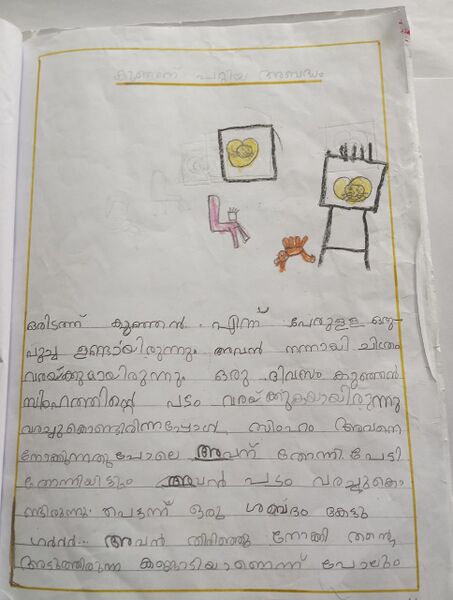 കുഞ്ഞന് പറ്റിയ അബദ്ധം
ഒരിടത്ത് കുഞ്ഞൻ എന്ന് പേരുള്ള ഒരു
പൂച്ച ഉണ്ടായിരുന്നു. അവൻ നന്നായി ചിത്രം
വരയ്ക്കുമായിരുന്നു. ഒരു ദിവസം കുഞ്ഞൻ
സിംഹത്തിന്റെ പടം വരയ്ക്കുകയായിരുന്നു
വരച്ചുകൊണ്ടിരിന്നപ്പോൾ സിംഹം അവനെ
നോക്കുന്നതുപോലെ അവന് തോന്നി പേടി
തോന്നിയിട്ടും അവൻ പടം വരച്ചുകൊ
ണ്ടിരുന്നു. പെട്ടന്ന് ഒരു ശബ്ദം കേട്ടു
ഗർർർ... അവൻ തിരിഞ്ഞു നോക്കി തന്റെ
അടുത്തിരുന്ന കണ്ണാടിയാണെന്ന് പോലും